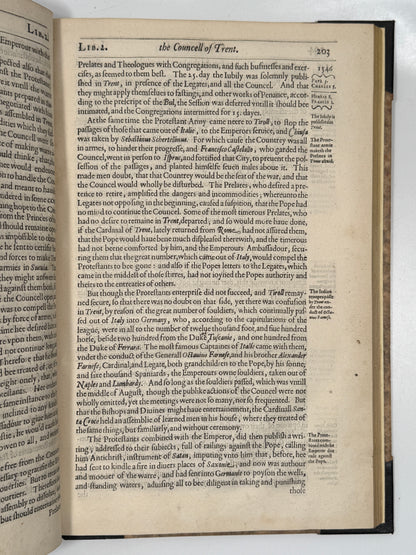 LIB. 2.
the Councell of Trent.
203
Prelates and Theologues with Congregations, and such businesses and exer-
cises, as seemed to them best. The 25. day the Iubily was solemnly publi-
shed in Trent, in presence of the Legates, and all the Councell. And that
they might apply themselues to fastings, and other works of Penance, accor-
ding to the prescript of the Bul, the Session was deferred vntill it should bee
intimated, and the Congregations intermitted for 15. dayes.
At the same time the Protestant Army came neere to Tiroll, to stop the
passages of those that came out of Italie, to the Emperors seruice, and Chiusa
was taken by Sebastianus Shertelinus. For which cause the Countrey was all
in armes, to hinder their progresse, and Franciscus Castelalto, who garded the
Councel, went in person to Ispruc, and fortified that City, to preuent the pos-
session of the passages, and planted himselfe seuen miles aboue it. This
made men doubt, that that Countrey would be the seat of the warre, and that
the Councell would wholly be disturbed. The Prelates, who desired a pre-
tence to retire, amplified the dangers and incommodities; whereunto the
Legates not opposing in the beginning, caused a suspition, that the Pope had
no mind to continue the Councel. Some of the most timerous Prelates, who
had no desire to remaine in Trent, departed; and so would more haue done,
if the Cardinall of Trent, lately returned from Rome, had not assured them,
that the Pope would haue been much displeased therewith, and the timerous
had not beene comforted by him, and the Emperours Ambassadour, secu-
ring them that the great number, which came out of Italy, would compell the
Protestants to bee gone: and also if the Popes letters to the Legates, which
came in the middest of those stirres, had not ioyned the Popes authority and
theirs to the entreaties of the others.
But though the Protestants enterprise did not succeed, and Tiroll remay-
ned secure, so that there was no doubt on that side, yet there was confusion
in Trent, by reason of the great number of souldiers, which continually pas-
sed out of Italy into Germany, who, according to the capitulations of the
league, were in all to the number of twelue thousand foot, and fiue hundred
horse, beside two hundred from the Duke of Tuscanie, and one hundred from
the Duke of Ferrara. The most famous Captaines of Italie came with them,
vnder the conduct of the Generall Octauius Farnese, and his brother Alexander
Farnese, Cardinal, and Legate, both grandchildren to the Pope, by his sonne;
and sixe thousand Spaniards, the Emperours owne souldiers, taken out of
Naples and Lombardy. And so long as the souldiers passed, which was vntill
the middle of August, though the publike actions of the Councel were not
wholly omitted, yet the meetings were not so many, nor so frequent. But
that the Bishops and Diuines might haue entertainment, the Cardinall Santa
Croce held an assembly of learned men in his house, where they treated of
the same things, but familiarly, and without ceremony.
The Protestants combined with the Emperor, did then publish a wri-
ting, addressed to their subiects, full of railings against the Pope, calling
him Antichrist, instrument of Satan, imputing vnto him that, before, hee
had sent to kindle a fire in diuers places of Saxonie, and now was authour
and moouer of the warre, and had sent into Germanie to poyson the wells,
and standing waters, aduising all to bee diligent in taking and punishing
those
1546
The Iubily is
published in
Trent.
The Prote-
stant armie
makes the
Prelates in
Trent afraid.